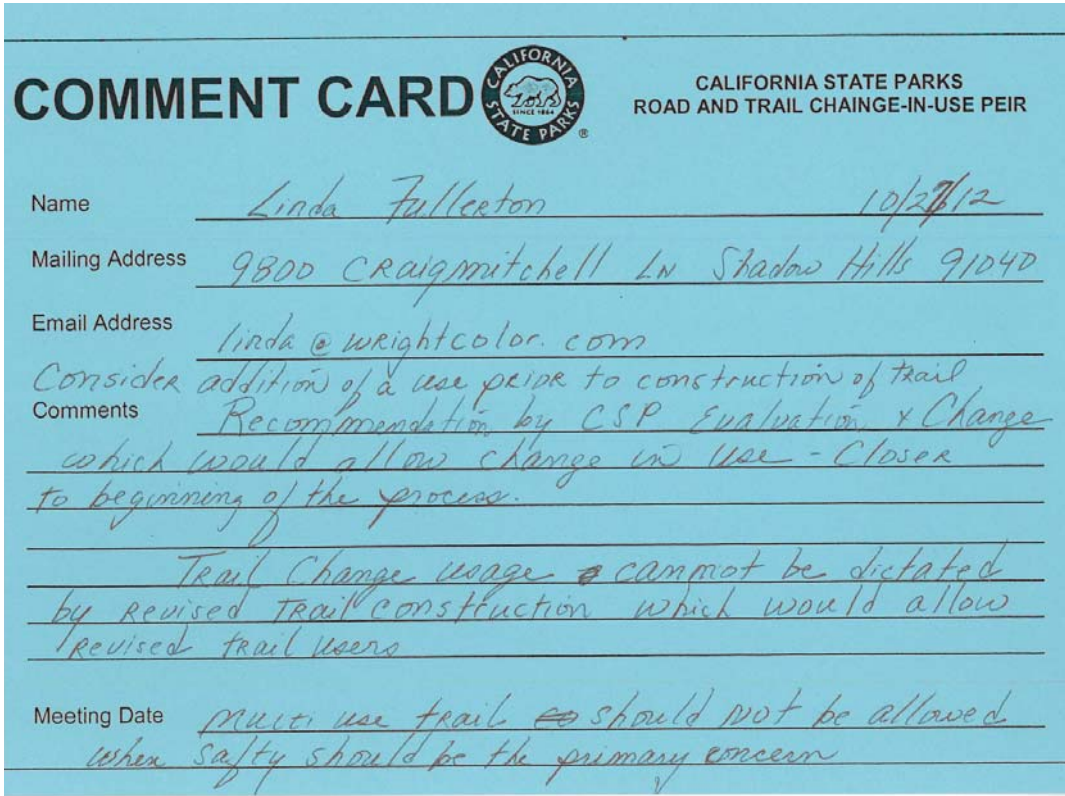 COMMENT CARD
CALIFORNIA
STATE PARKS
SINCE 1864
®
CALIFORNIA STATE PARKS
ROAD AND TRAIL CHAINGE-IN-USE PEIR
Name Linda Fullerton 10/27/12
Mailing Address 9800 CRaigmitchell LN Shadow Hills 91040
Email Address linda@wrightcolor.com
Consider addition of a use prior to construction of trail
Comments Recommendation by CSP Evaluation & Change
which would allow change in use - Closer
to beginning of the process.
Trail Change usage cannot be dictated
by revised Trail construction which would allow
revised trail users
Meeting Date Multi use trail should not be allowed
when safty should be the primary concern